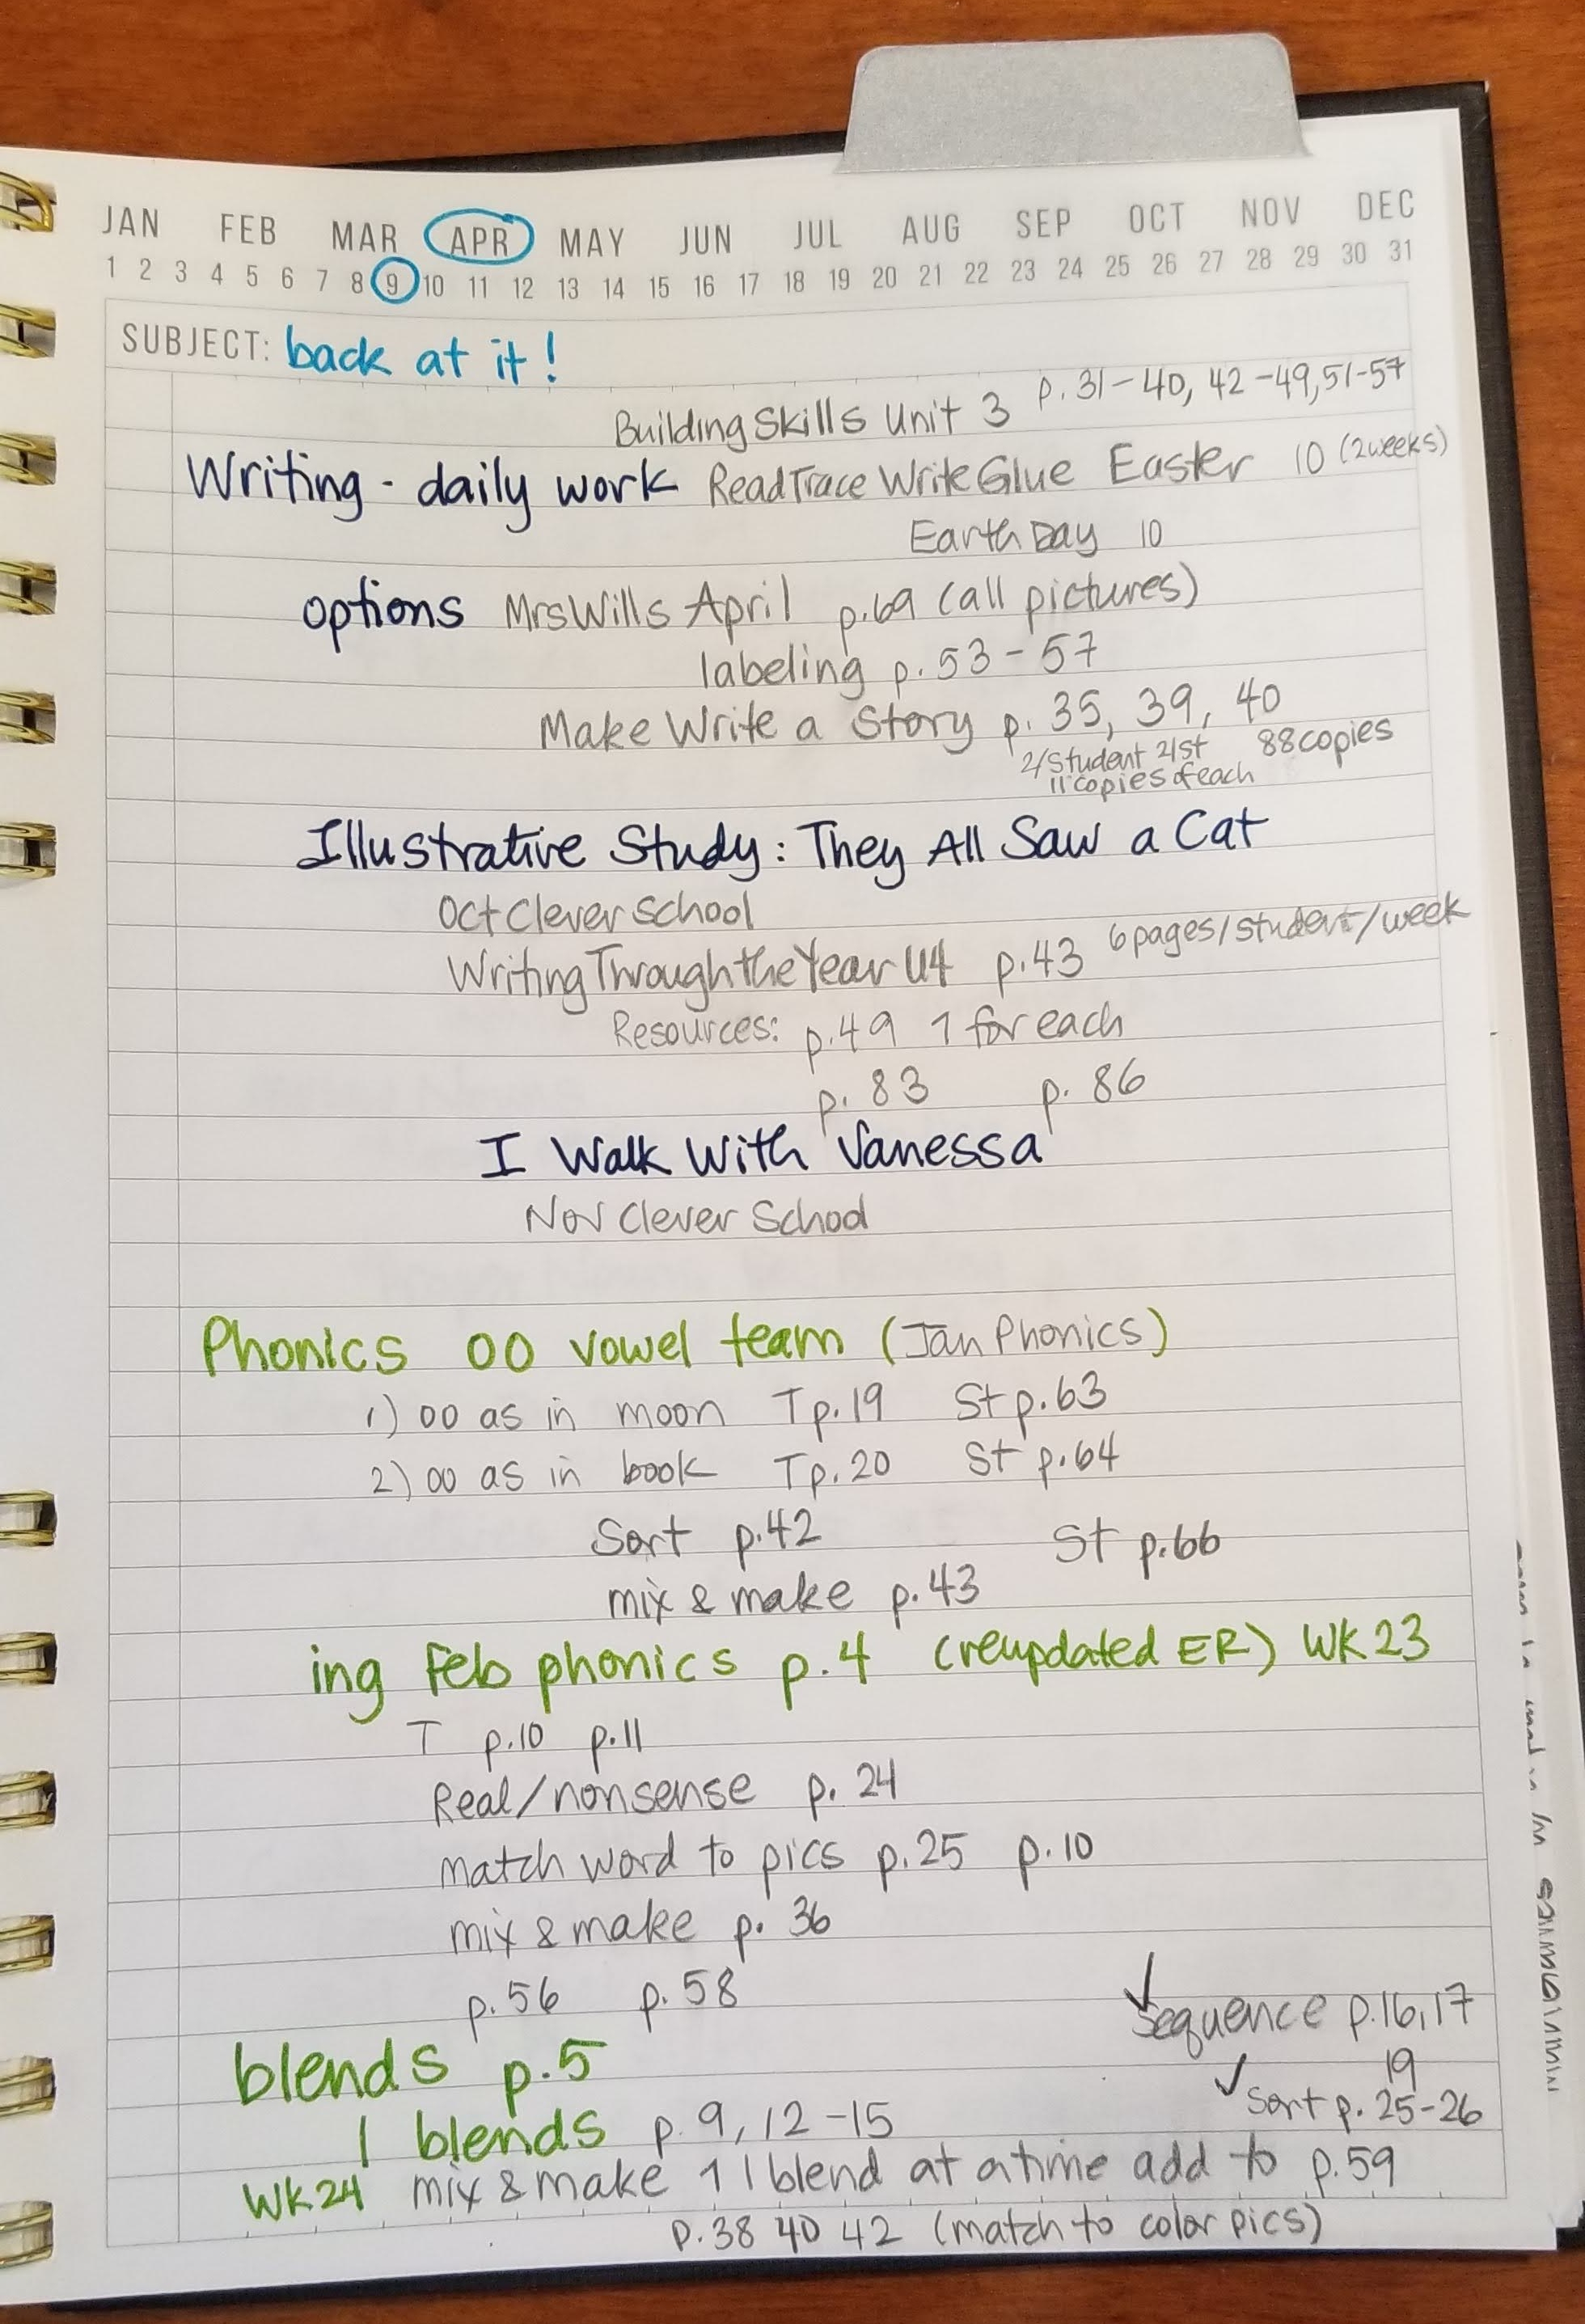 JAN FEB MAR APR MAY JUN JUL AUG SEP OCT NOV DEC
1 2 3 4 5 6 7 8 9 10 11 12 13 14 15 16 17 18 19 20 21 22 23 24 25 26 27 28 29 30 31
SUBJECT: back at it!
Building Skills Unit 3 p. 31-40, 42-49, 51-57
Writing - daily work Read Trace Write Glue Easter 10 (2 weeks)
Earth Day 10
options Mrs Wills April p.69 (all pictures)
labeling p. 53-57
Make Write a Story p. 35, 39, 40
2/student 2/st 88 copies
11 copies of each
Illustrative Study: They All Saw a Cat
Oct Clever School
Writing Through the Year U4 p.43 6 pages/student/week
Resources: p.49 1 for each
p. 83 p. 86
I Walk With Vanessa
Nov Clever School
Phonics oo vowel team (Jan Phonics)
1) oo as in moon T p.19 St p.63
2) oo as in book T p.20 St p.64
Sort p.42 St p.66
mix & make p.43
ing Feb phonics p.4 (reupdated ER) WK 23
T p.10 p.11
Real/nonsense p. 24
match word to pics p.25 p.10
mix & make p. 36
p.56 p.58
✓ Sequence p.16,17
19
blends p.5
✓ Sort p. 25-26
l blends p. 9, 12-15
WK 24 mix & make 1 l blend at a time add to p.59
p.38 40 42 (match to color pics)